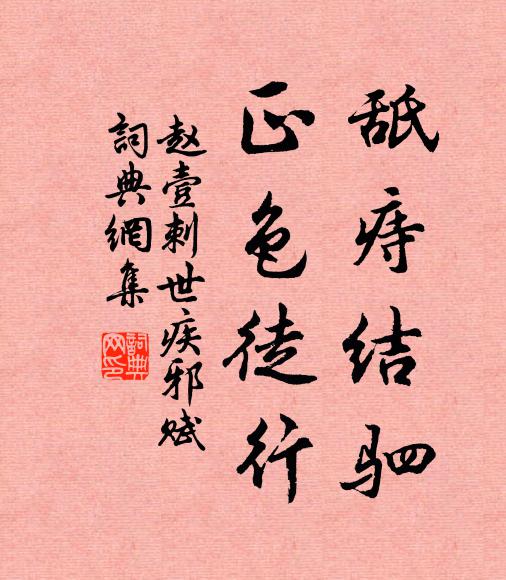 舐痔结驷
正色徒行
赵壹刺世疾邪赋
詞典網集
詞典
网印